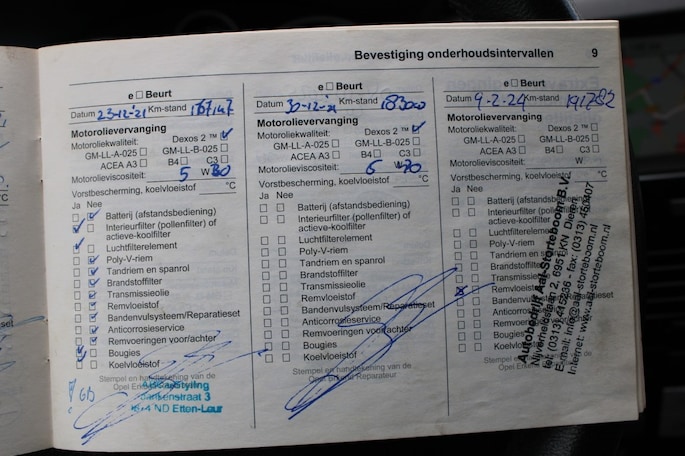 Bevestiging onderhoudsintervallen 9
e □ Beurt
Datum 23-12-'21 Km-stand 167147
Motorolievervanging
Motoroliekwaliteit: Dexos 2 ™ ☑
GM-LL-A-025 □ GM-LL-B-025 □
ACEA A3 □ B4 □ C3 □
Motorolieviscositeit: 5 W 30
Vorstbescherming, koelvloeistof °C
Ja Nee
Batterij (afstandsbediening)
Interieurfilter (pollenfilter) of
actieve-koolfilter
Luchtfilterelement
Poly-V-riem
Tandriem en spanrol
Brandstoffilter
Transmissieolie
Remvloeistof
Bandenvulsysteem/Reparatieset
Anticorrosieservice
Remvoeringen voor/achter
Bougies
Koelvloeistof
Stempel en handtekening van de
straat 3
ND Etten-Leur
e □ Beurt
Datum 30-12-'21 Km-stand 183000
Motorolievervanging
Motoroliekwaliteit: Dexos 2 ™ ☑
GM-LL-A-025 □ GM-LL-B-025 □
ACEA A3 □ B4 □ C3 □
Motorolieviscositeit: W
Vorstbescherming, koelvloeistof °C
Ja Nee
Batterij (afstandsbediening)
Interieurfilter (pollenfilter) of
actieve-koolfilter
Luchtfilterelement
Poly-V-riem
Tandriem en spanrol
Brandstoffilter
Transmissieolie
Remvloeistof
Bandenvulsysteem/Reparatieset
Anticorrosieservice
Remvoeringen voor/achter
Bougies
Koelvloeistof
Stempel en handtekening van de
Opel Erkend Reparateur
e □ Beurt
Datum 9-2-24 Km-stand 191782
Motorolievervanging
Motoroliekwaliteit: Dexos 2 ™ □
GM-LL-A-025 □ GM-LL-B-025 □
ACEA A3 □ B4 □ C3 □
Motorolieviscositeit: W
Vorstbescherming, koelvloeistof °C
Ja Nee
Batterij (afstandsbediening)
Interieurfilter (pollenfilter) of
actieve-koolfilter
Luchtfilterelement
Poly-V-riem
Tandriem en spanrol
Brandstoffilter
Transmissieolie
Remvloeistof
Bandenvulsysteem
Anticorrosieservice
Remvoeringen voor/achter
Bougies
Koelvloeistof
Stempel en handtekening van de
Autobedrijf Aal-Storteboom B.V.
2, 6951 KN Dieren
E-mail: info@aal-storteboom.nl
Internet: www.aal-storteboom.nl